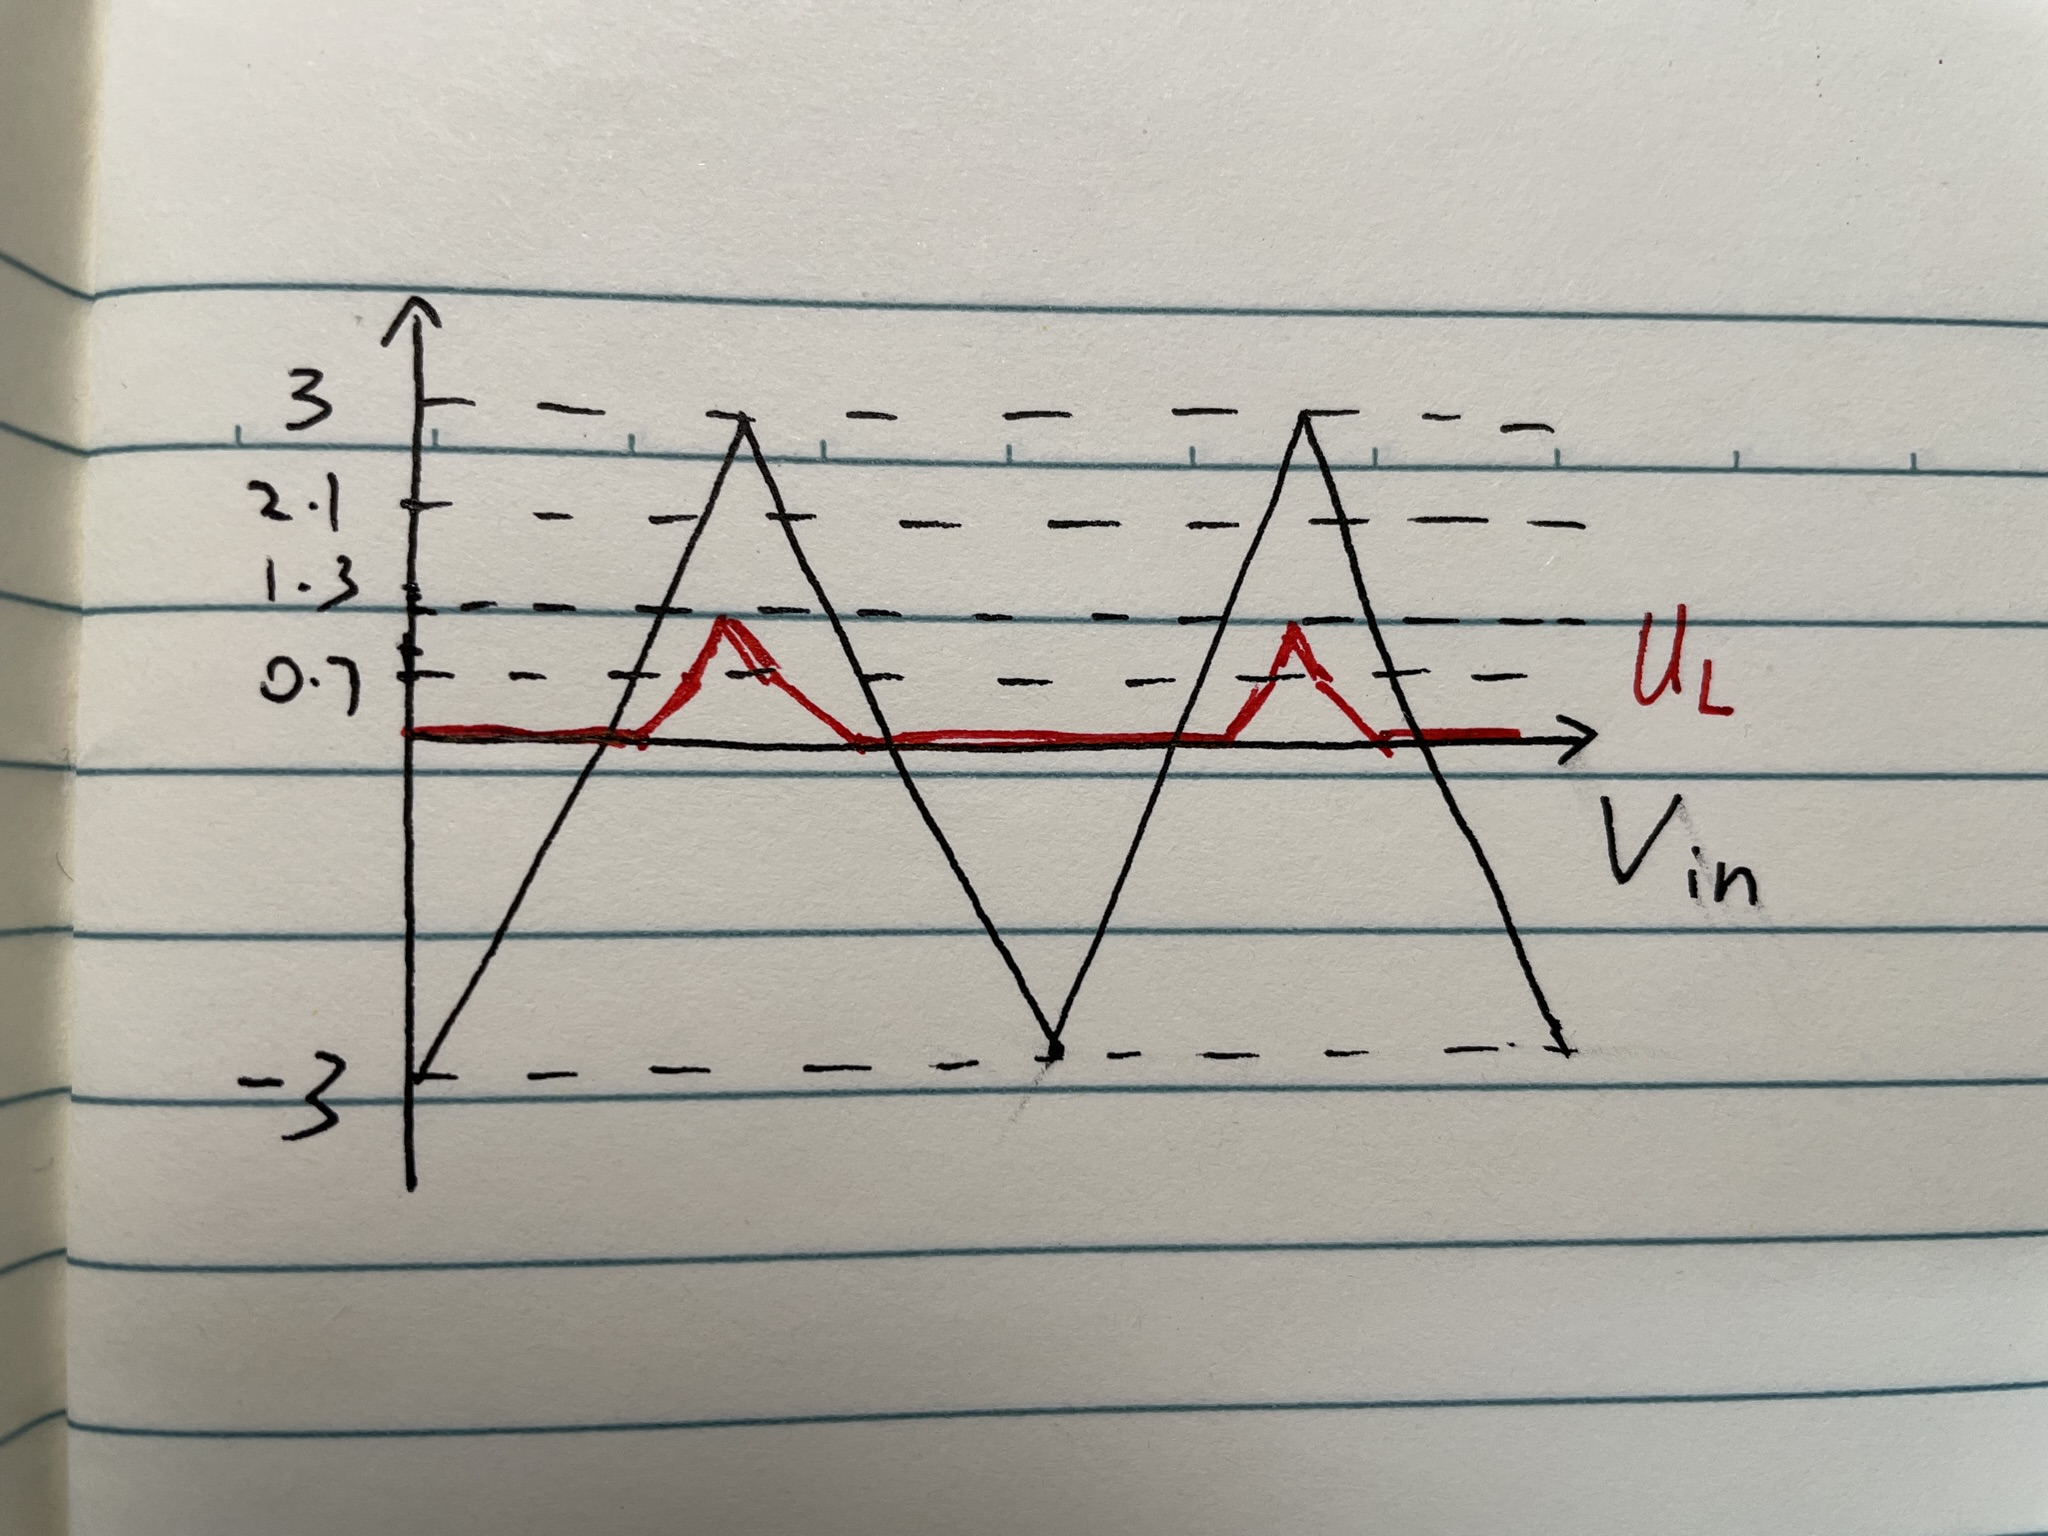 3
2.1
1.3
0.7
U_L
V_in
-3